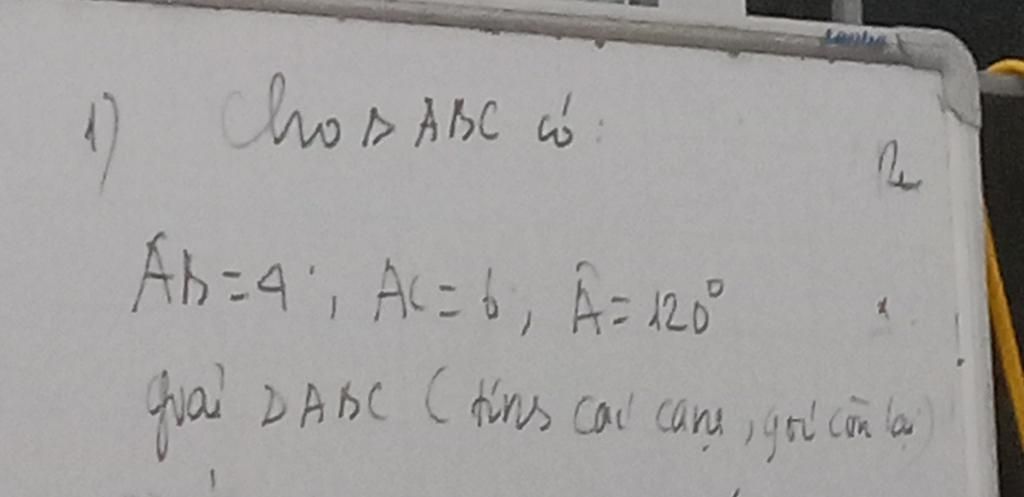 1) Cho Δ ABC có:
AB = 4; AC = 6, Â = 120°
giải Δ ABC (tính các cạnh, góc còn lại)